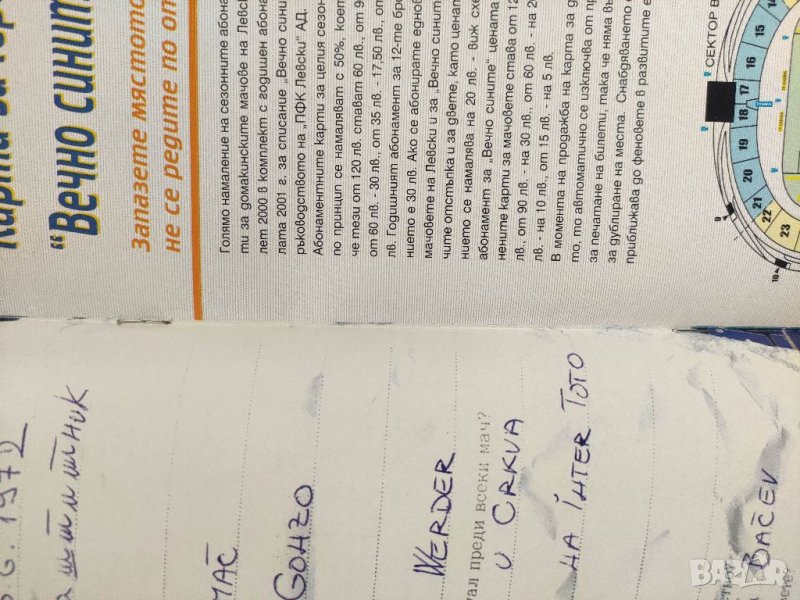 "Вечно синит
Запазете мястото
не се редите по оп
Голямо намаление на сезонните абона
ти за домакинските мачове на Левски
лет 2000 в комплект с годишен абона
лата 2001 г. за списание „Вечно сини
ръководството на „ПФК Левски" АД.
Абонаментните карти за целия сезон
по принцип се намаляват с 50%, коет
че тези от 120 лв. стават 60 лв., от 9
от 60 лв. - 30 лв., от 35 лв. - 17,50 лв., от
лв. Годишният абонамент за 12-те бро
нието е 30 лв. Ако се абонирате еднов
мачовете на Левски и за „Вечно синит
чите отстъпка и за двете, като ценат
нието се намалява на 20 лв. - виж схем
абонамент за „Вечно сините" цената
нените карти за мачовете става от 12
лв., от 90 лв. - на 30 лв., от 60 лв. - на 20
лв. - на 10 лв., от 15 лв. - на 5 лв.
В момента на продажба на карта за д
то, то автоматично се изключва от пр
за печатане на билети, така че няма въ
за дублиране на места. Снабдяването
приближава до феновете в развитите е
СЕКТОР В
14
15
16
17
18
19
20
21
22
23
9
10
6. 1972
МАČ
GOHZO
WERDER
уал преди всеки мач?
И CRKVA
НА İHTER TOTO
BAČEV
bazar